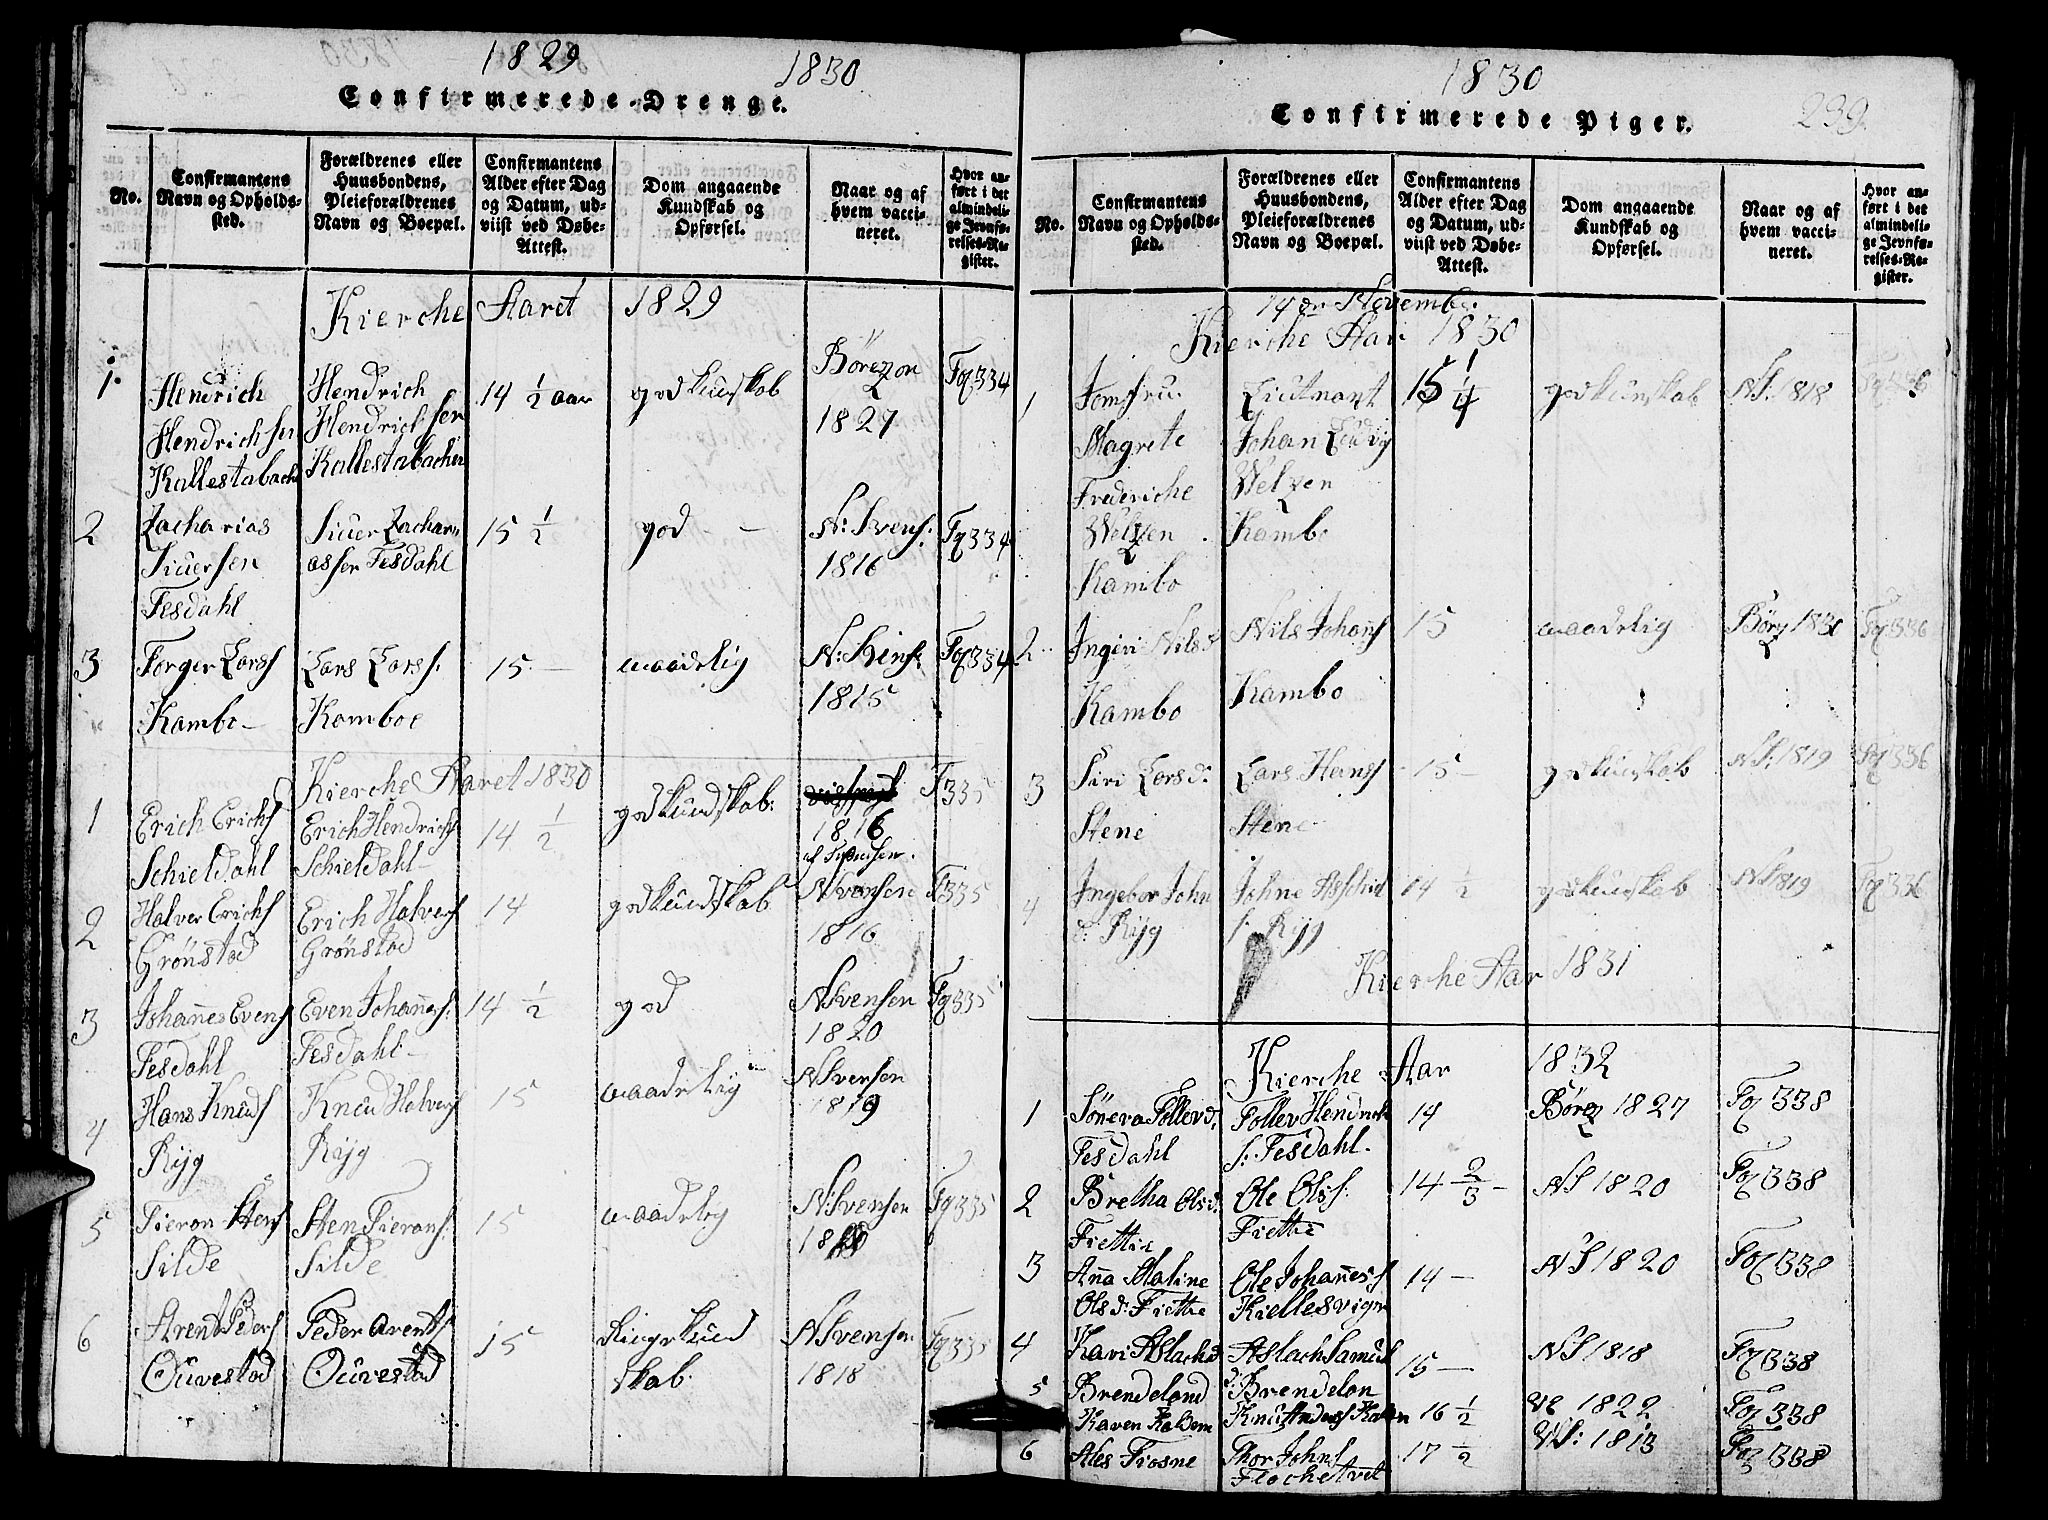 1829
1830
Confirmerede-Drenge.
No.
Confirmantens Navn og Opholds-sted.
Forældrenes eller Huusbondens, Pleieforældrenes Navn og Boepæl.
Confirmantens Alder efter Dag og Datum, ud-viist ved Døbe-Attest.
Dom angaaende Kundskab og Opførsel.
Naar og af hvem vacci-neret.
Hvor an-ført i det almindeli-ge Jevnfø-relses-Re-gister.
Kierche Aaret 1829
1. Hendrich Hendrichsen Kallestabach
Hendrich Hendrichsen Kallestabachen
14 1/2 aar
god kundskab
Börezon 1827
Fol 334
2 Zacharias Siuersen Tesdahl
Siuer Zachariassen Tesdahl
15 1/2
god -
N: Svens. 1816
Fol 334
3 Torger Larss Kambo
Lars Larss. Kamboe
15 -
maadelig
1815
Fol 334
Kierche Aaret 1830
1 Erich Erichs Schieldahl
Erich Hendrichs Schieldahl
14 1/2
god kundskab.
1816
af Svensen.
F 335
2 Halver Erichs Grönstad
Erich Halvers Grönstad
14
god kundskab
N Svensen 1816
F 335
3 Johannes Evens Tesdahl
Even Johannes. Tesdahl
14 1/2
god
N Svensen 1820
Fol 335
4 Hans Knuds Ryg
Knud Halvers Ryg
15
maadelig
N Svensen 1819
5 Tieran Stens Silde
Sten Tierans. Silde
15
maadelig
N: Svensen
Fol 335
6 Arent Peders Ouvestad
Peder Arents Ouvestad
15
Ringe kundskab.
N Svensen 1818
Fol 335
1830
239.
Confirmerede Piger.
No.
Confirmantens Navn og Opholds-sted.
Forældrenes eller Huusbondens, Pleieforældrenes Navn og Boepæl.
Confirmantens Alder efter Dag og Datum, ud-viist ved Døbe-Attest.
Dom angaaende Kundskab og Opførsel.
Naar og af hvem vacci-neret.
Hvor an-ført i det almindeli-ge Jevnfø-relses-Re-gister.
14 en Novembr.
Kierche Aar 1830
1 Jomfru Magrete Frederiche Welzen Kambo
Lieutnant Johan Ludvig Welzen Kambo
15 1/4
god kundskab
NS. 1818
Fol 336
2 Ingeri Nilsd Kambo
Nils Johans Kambo
15
maadelig
Fol 336
3 Siri Larsd. Stene
Lars Hans Stene
15 -
god kundskab
NS: 1819
Fol 336
4 Ingebor John d: Ryg
Johne s. Ryg
14 1/2
god kundskab
NS 1819
Fol 336
Kierche Aar 1831
Kierche Aar 1832
1 Söneva Tollevd. Tesdahl
Tollev Hendrich s: Tesdahl.
14
Börez 1827
Fol 338
2 Bretha Olsd. Fiettie
Ole Ols. Fiettie
14 2/3 -
NS 1820
Fol 338
3 Anna Maline Olsd. Fiettie
Ole Johannes Kiellesvign
14 -
NS 1820
Fol 338
4 Kari Aslachd Brendeland
Aslach Samuels Brendelan
15 -
NS 1818
Fol 338
5 Karen
16 1/2
1822
Fol 338
6 Ales Tiosne
Thor Johns
17 1/2
1813
Fol 338